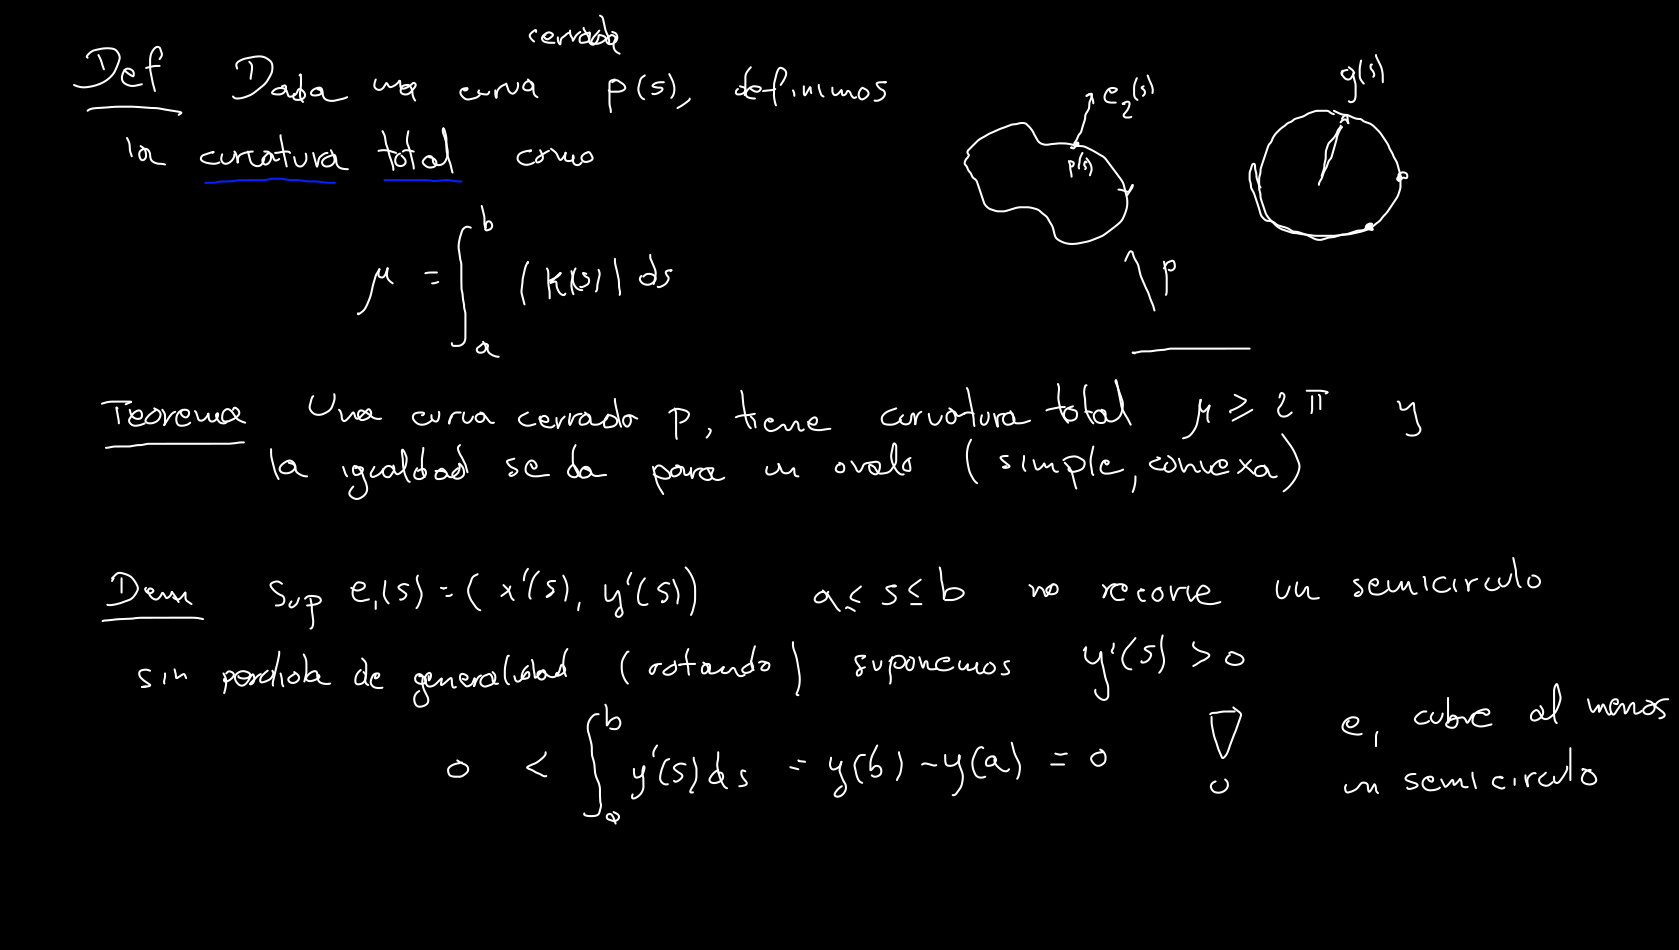 cerrada
Def Dada una curva p(s), definimos
la curvatura total como
μ = ∫_a^b |K(s)| ds
e₂(s)
p(s)
g(s)
p
Teorema Una curva cerrada p, tiene curvatura total μ ≥ 2π y
la igualdad se da para un ovalo (simple, convexa)
Dem Sup e₁(s) = (x'(s), y'(s)) a ≤ s ≤ b no recorre un semicirculo
sin perdida de generalidad (rotando) suponemos y'(s) > 0
0 < ∫_a^b y'(s) ds = y(b) - y(a) = 0 e₁ cubre al menos
un semicirculo